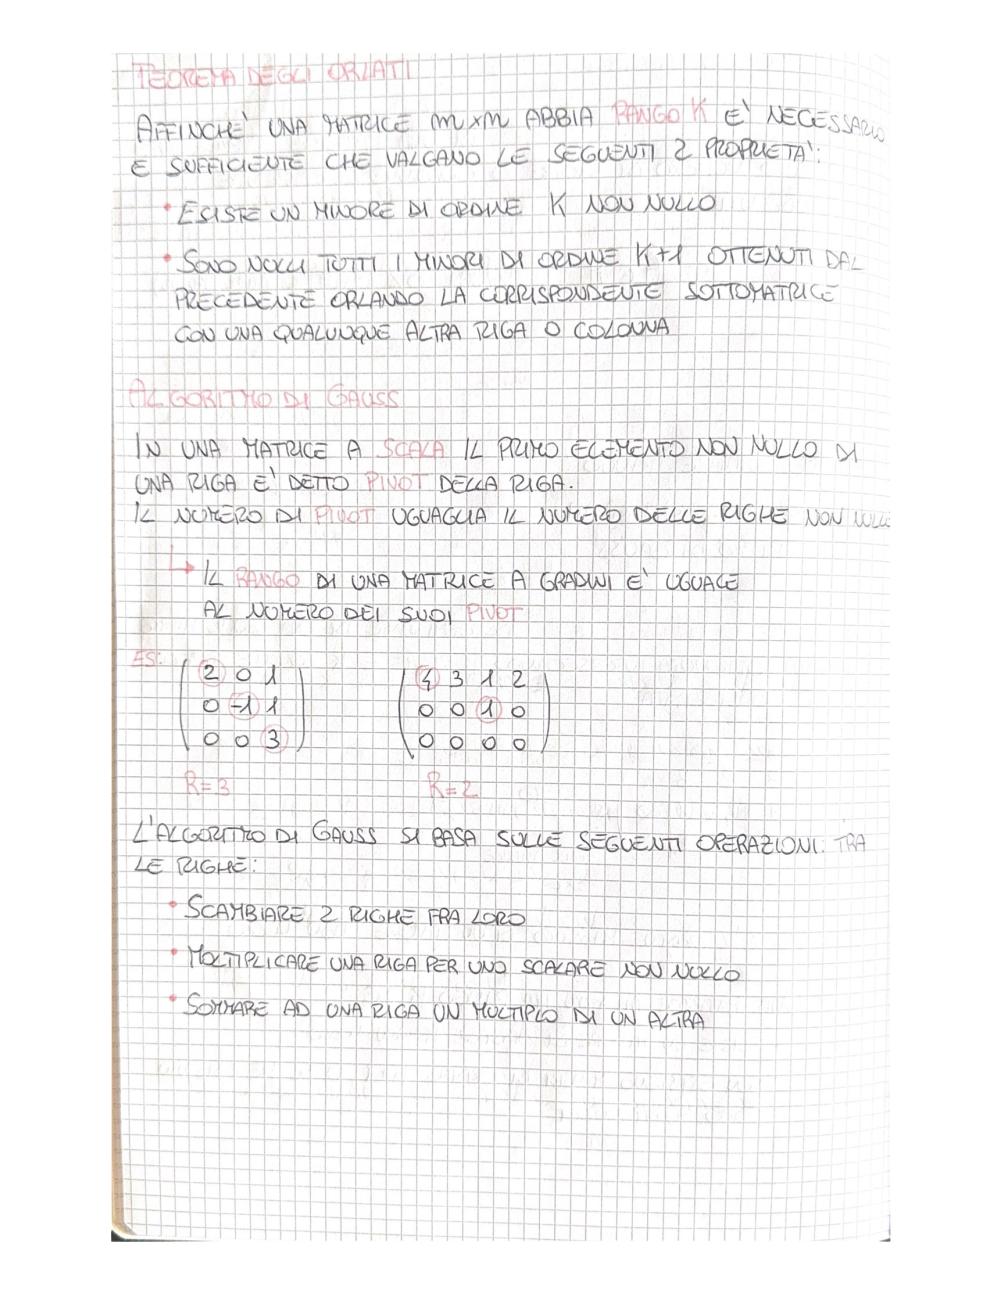 TEOREMA DEGLI ORLATI
AFFINCHE' UNA MATRICE m×m ABBIA RANGO K E' NECESSARIO
E SUFFICIENTE CHE VALGANO LE SEGUENTI 2 PROPRIETA':
• ESISTE UN MINORE DI ORDINE K NON NULLO
• SONO NULLI TUTTI I MINORI DI ORDINE K+1 OTTENUTI DAL
PRECEDENTE ORLANDO LA CORRISPONDENTE SOTTOMATRICE
CON UNA QUALUNQUE ALTRA RIGA O COLONNA
ALGORITMO DI GAUSS
IN UNA MATRICE A SCALA IL PRIMO ELEMENTO NON NULLO DI
UNA RIGA E' DETTO PIVOT DELLA RIGA.
IL NUMERO DI PIVOT UGUAGLIA IL NUMERO DELLE RIGHE NON NULLE
↳ IL RANGO DI UNA MATRICE A GRADINI E' UGUALE
AL NUMERO DEI SUOI PIVOT
ES:
2 0 1
0 -1 1
0 0 3
R=3
4 3 1 2
0 0 1 0
0 0 0 0
R=2
L'ALGORITMO DI GAUSS SI BASA SULLE SEGUENTI OPERAZIONI TRA
LE RIGHE:
• SCAMBIARE 2 RIGHE FRA LORO
• MOLTIPLICARE UNA RIGA PER UNO SCALARE NON NULLO
• SOMMARE AD UNA RIGA UN MULTIPLO DI UN ALTRA